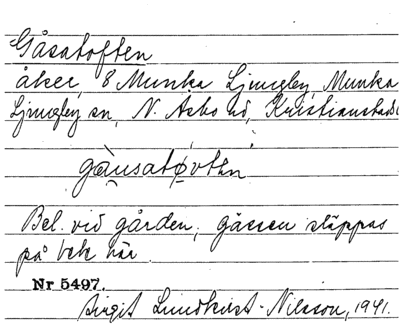 Gåsatoften
åker, 8 Munka Ljungby, Munka
Ljungby sn, N. Åsbo hd, Kristianstads
gåusatøvtən
Bel. vid gården; gässen släppas
på bek här.
Nr 5497.
Birgit Lundkvist-Nilsson, 1941.